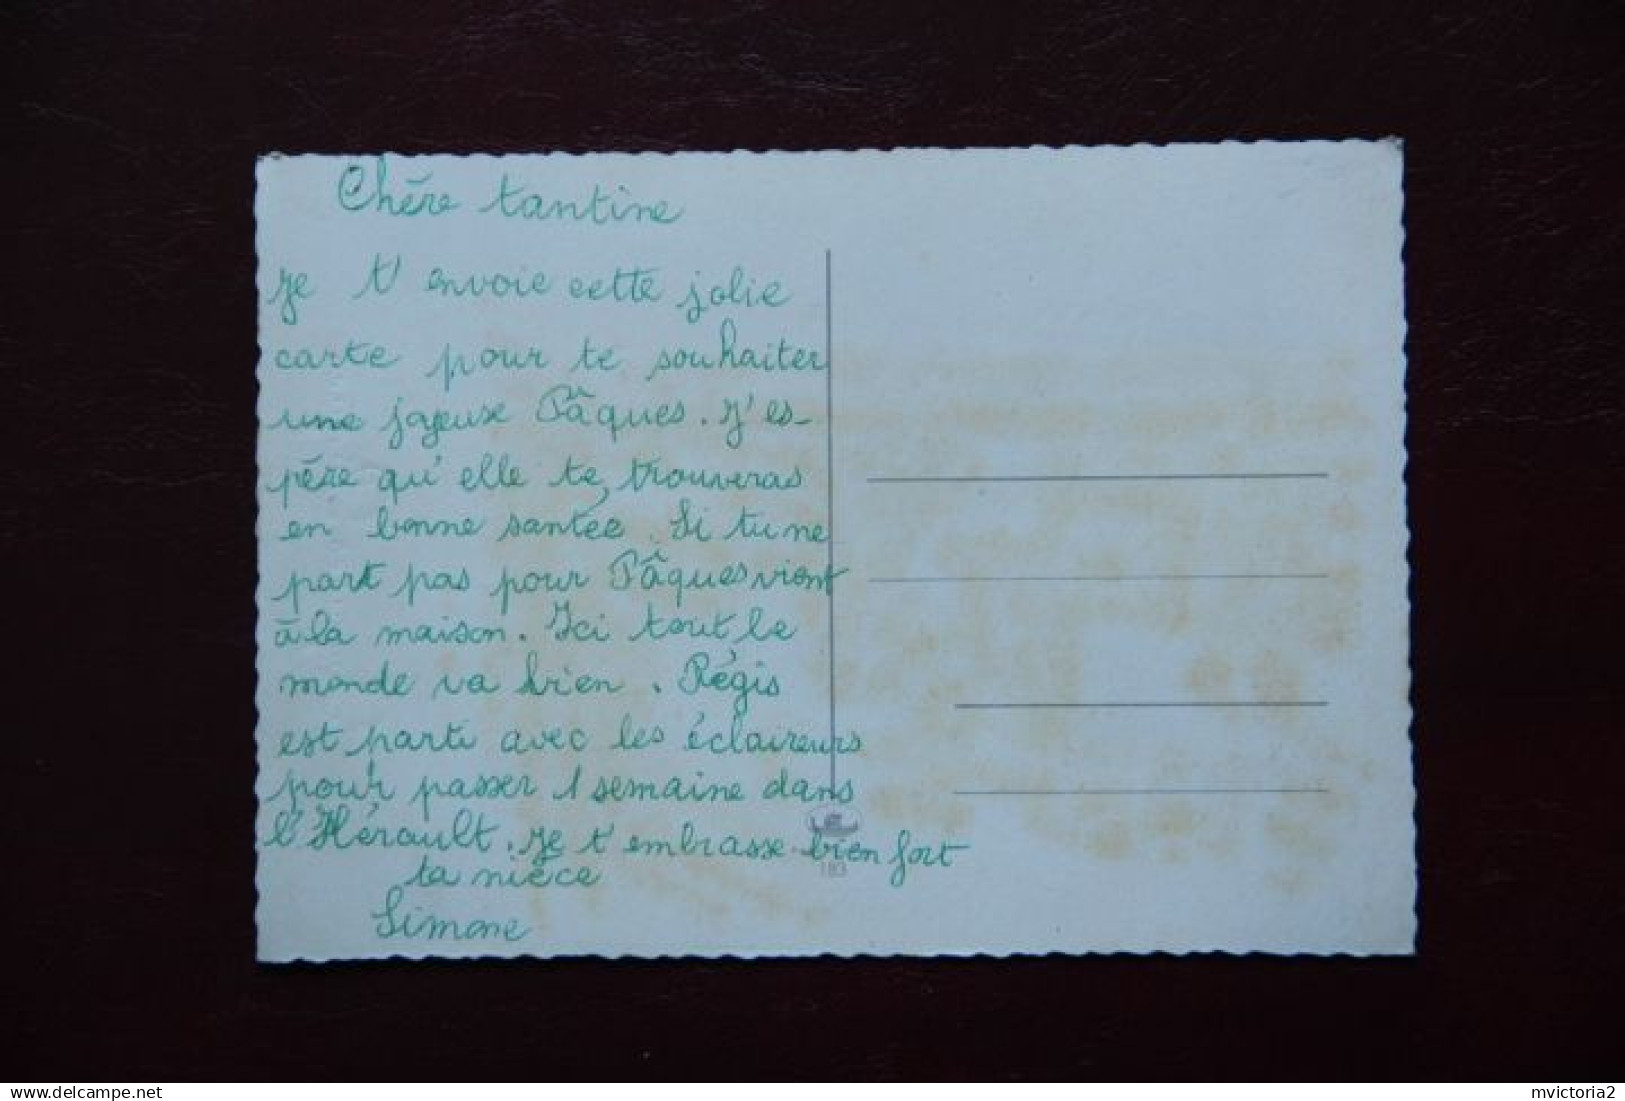 Chère tantine
Je t'envoie cette jolie
carte pour te souhaiter
une joyeuse Pâques. J'es-
père qu'elle te trouveras
en bonne santée. Si tu ne
part pas pour Pâques vient
à la maison. Ici tout le
monde va bien. Régis
est parti avec les éclaireurs
pour passer 1 semaine dans
l'Hérault. Je t'embrasse bien fort
ta nièce
Simone
183
delcampe.net
mvictoria2